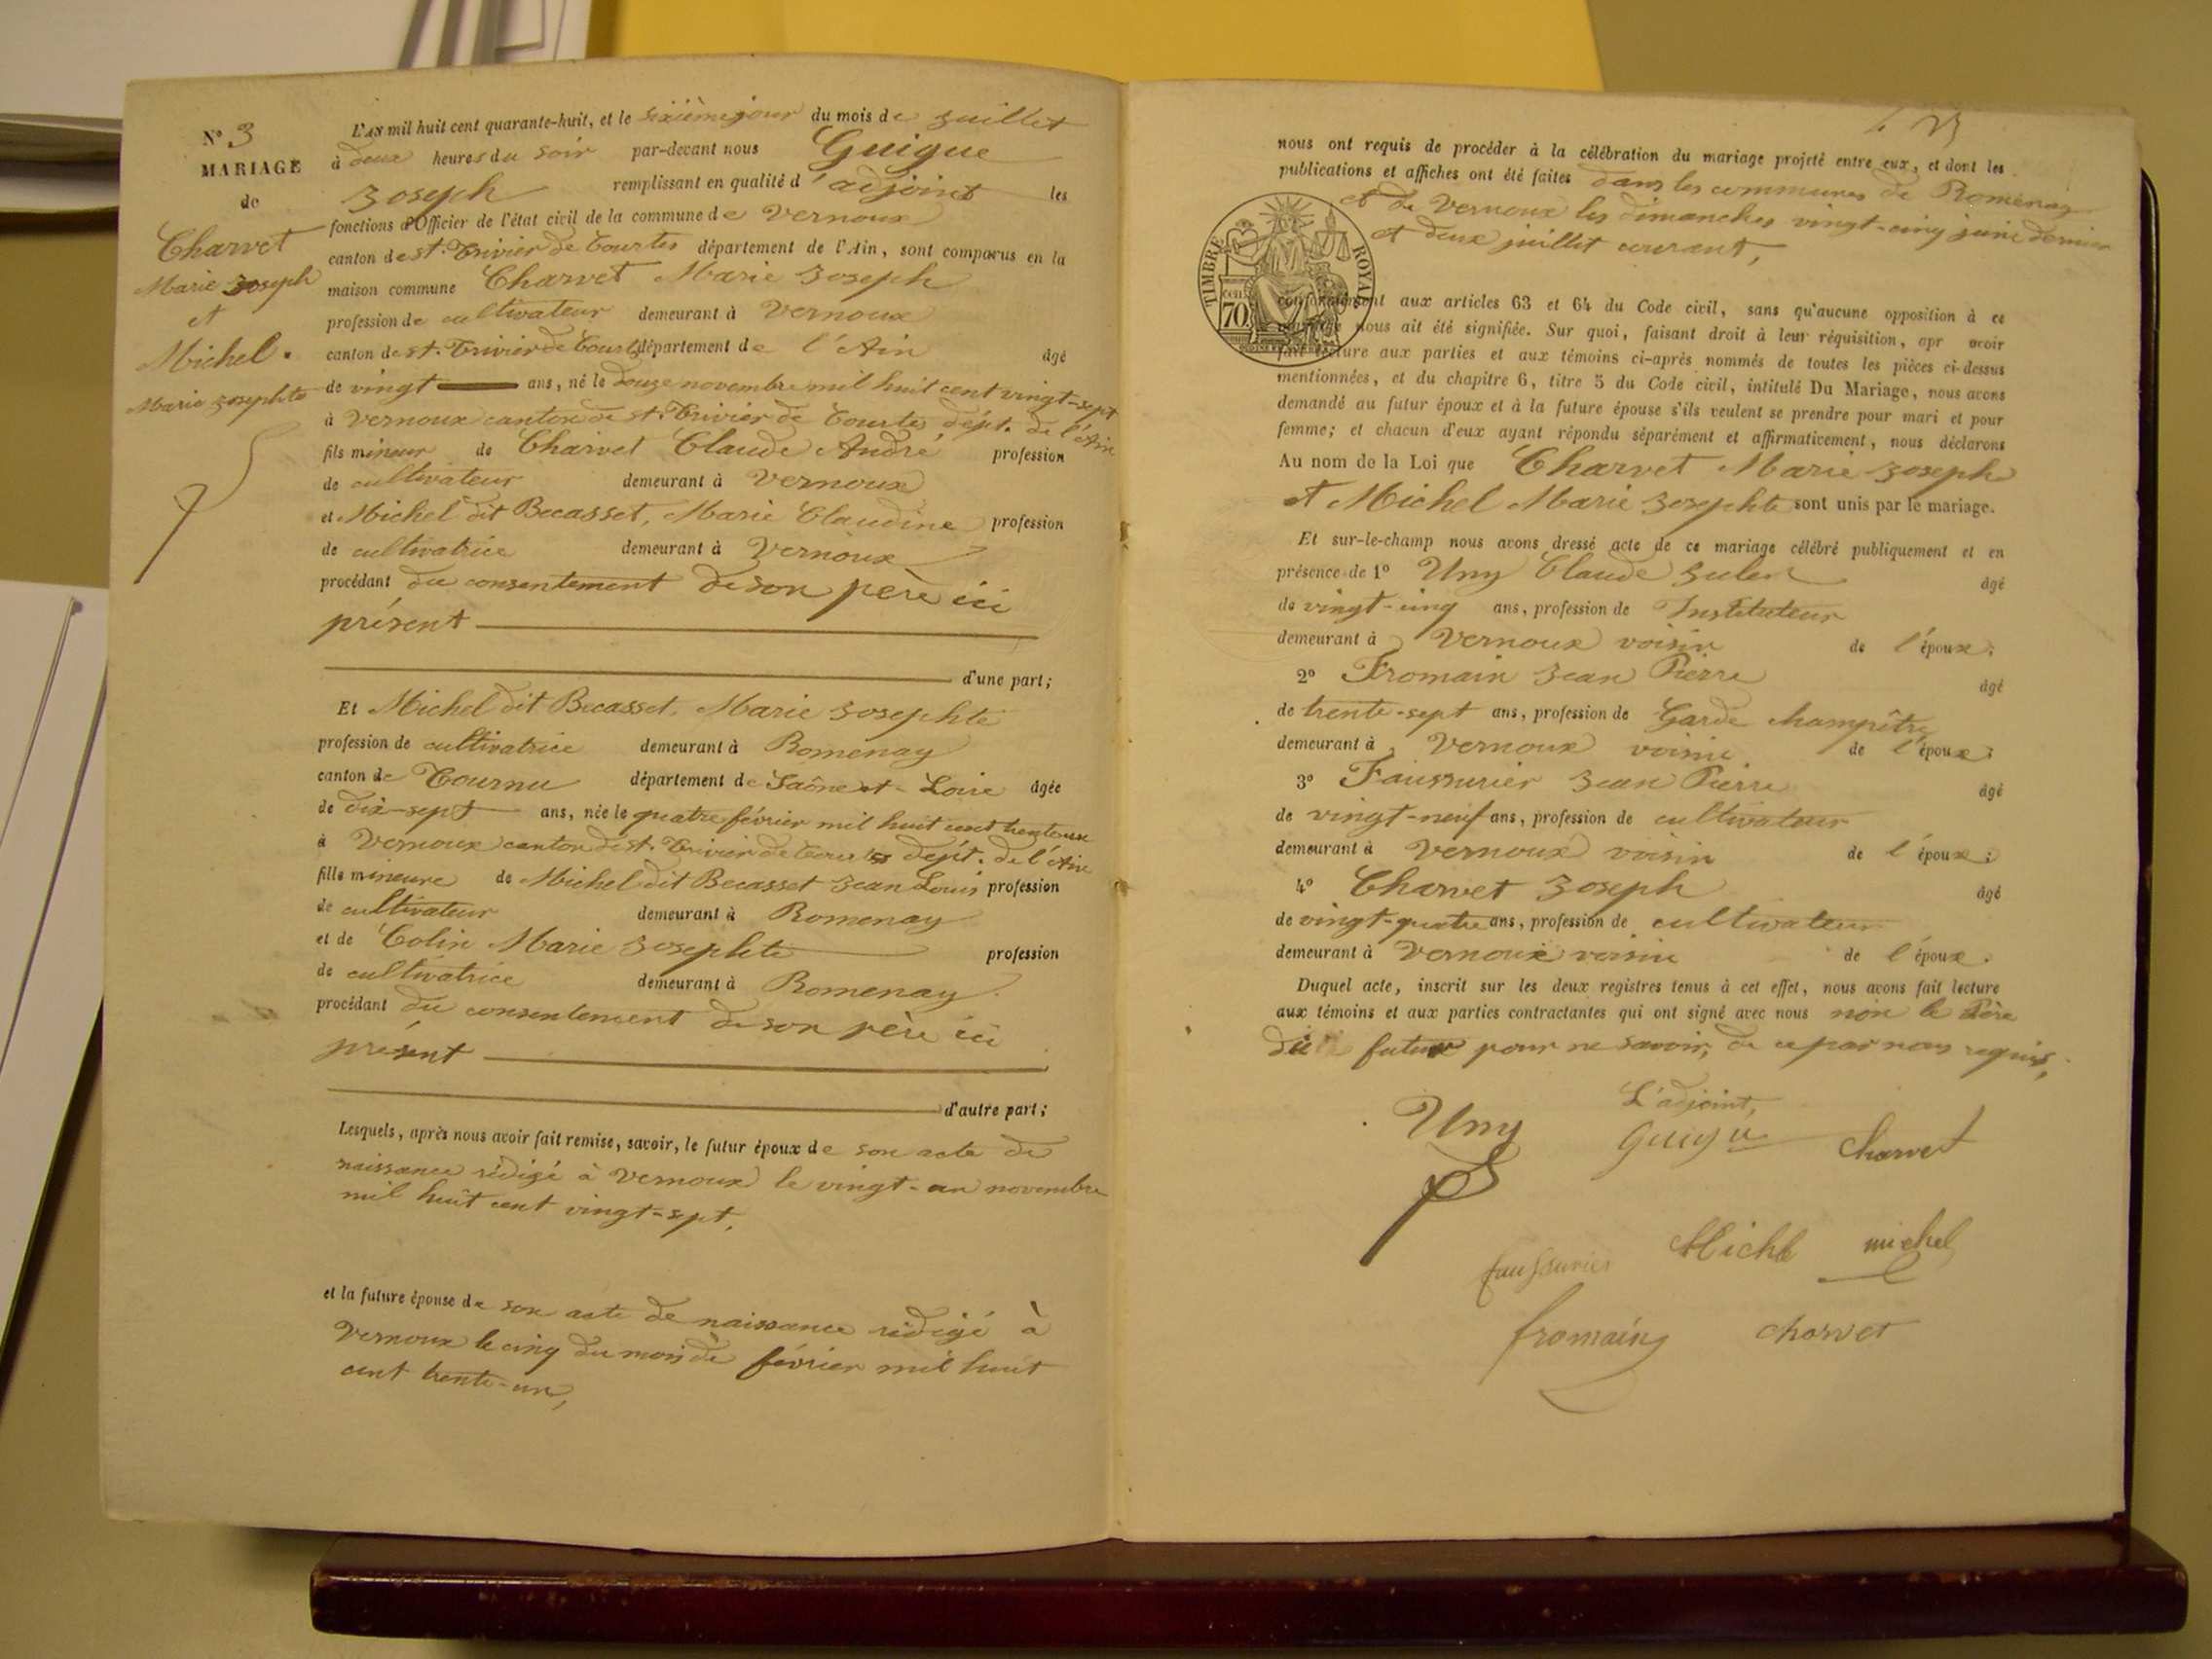 N° 3
MARIAGE
de
Charvet
Marie Joseph
et
Michel.
Marie Josephte
L'AN mil huit cent quarante-huit, et le sixième jour du mois de juillet
à deux heures du soir par-devant nous Guigue
Joseph remplissant en qualité d'adjoint les
fonctions d'Officier de l'état civil de la commune de Vernoux
canton de St. Trivier de Courtes département de l'Ain, sont comparus en la
maison commune Charvet Marie Joseph
profession de cultivateur demeurant à Vernoux
canton de St. Trivier de Courtes département de l'Ain âgé
de vingt ans, né le douze novembre mil huit cent vingt-sept
à Vernoux canton de St. Trivier de Courtes dépt. de l'Ain
fils mineur de Charvet Claude André profession
de cultivateur demeurant à Vernoux
et Michel dit Becasset, Marie Claudine profession
de cultivatrice demeurant à Vernoux
procédant du consentement de son père ici
présent
d'une part;
Et Michel dit Becasset, Marie Josephte
profession de cultivatrice demeurant à Romenay
canton de Tournu département de Saône et Loire âgée
de dix-sept ans, née le quatre février mil huit cent trente un
à Vernoux canton de St. Trivier de Courtes dépt. de l'Ain
fille mineure de Michel dit Becasset Jean Louis profession
de cultivateur demeurant à Romenay
et de Colin Marie Josephte profession
de cultivatrice demeurant à Romenay
procédant du consentement de son père ici
présent
d'autre part;
Lesquels, après nous avoir fait remise, savoir, le futur époux de son acte de
naissance rédigé à Vernoux le vingt-un novembre
mil huit cent vingt-sept,
et la future épouse de son acte de naissance rédigé à
Vernoux le cinq du mois de février mil huit
cent trente-un,
nous ont requis de procéder à la célébration du mariage projeté entre eux, et dont les
publications et affiches ont été faites dans les communes de Romenay
et de Vernoux les dimanches vingt-cinq juin dernier
et deux juillet courant,
TIMBRE ROYAL
70 cen
conformément aux articles 63 et 64 du Code civil, sans qu'aucune opposition à ce
nous ait été signifiée. Sur quoi, faisant droit à leur réquisition, apr avoir
fait lecture aux parties et aux témoins ci-après nommés de toutes les pièces ci-dessus
mentionnées, et du chapitre 6, titre 5 du Code civil, intitulé Du Mariage, nous avons
demandé au futur époux et à la future épouse s'ils veulent se prendre pour mari et pour
femme; et chacun d'eux ayant répondu séparément et affirmativement, nous déclarons
Au nom de la Loi que Charvet Marie Joseph
et Michel Marie Josephte sont unis par le mariage.
Et sur-le-champ nous avons dressé acte de ce mariage célébré publiquement et en
présence de 1° Uny Claude Julen âgé
de vingt-cinq ans, profession de Instituteur
demeurant à Vernoux voisin de l'époux;
2° Fromain Jean Pierre âgé
de trente-sept ans, profession de Garde champêtre
demeurant à Vernoux voisin de l'époux;
3° Faussurier Jean Pierre âgé
de vingt-neuf ans, profession de cultivateur
demeurant à Vernoux voisin de l'époux;
4° Charvet Joseph âgé
de vingt-quatre ans, profession de cultivateur
demeurant à Vernoux voisin de l'époux.
Duquel acte, inscrit sur les deux registres tenus à cet effet, nous avons fait lecture
aux témoins et aux parties contractantes qui ont signé avec nous non le Père
du futur pour ne savoir, de ce par nous requis,
Uny L'adjoint, Guigue Charvet
faussurier Michel michel
fromaing charvet